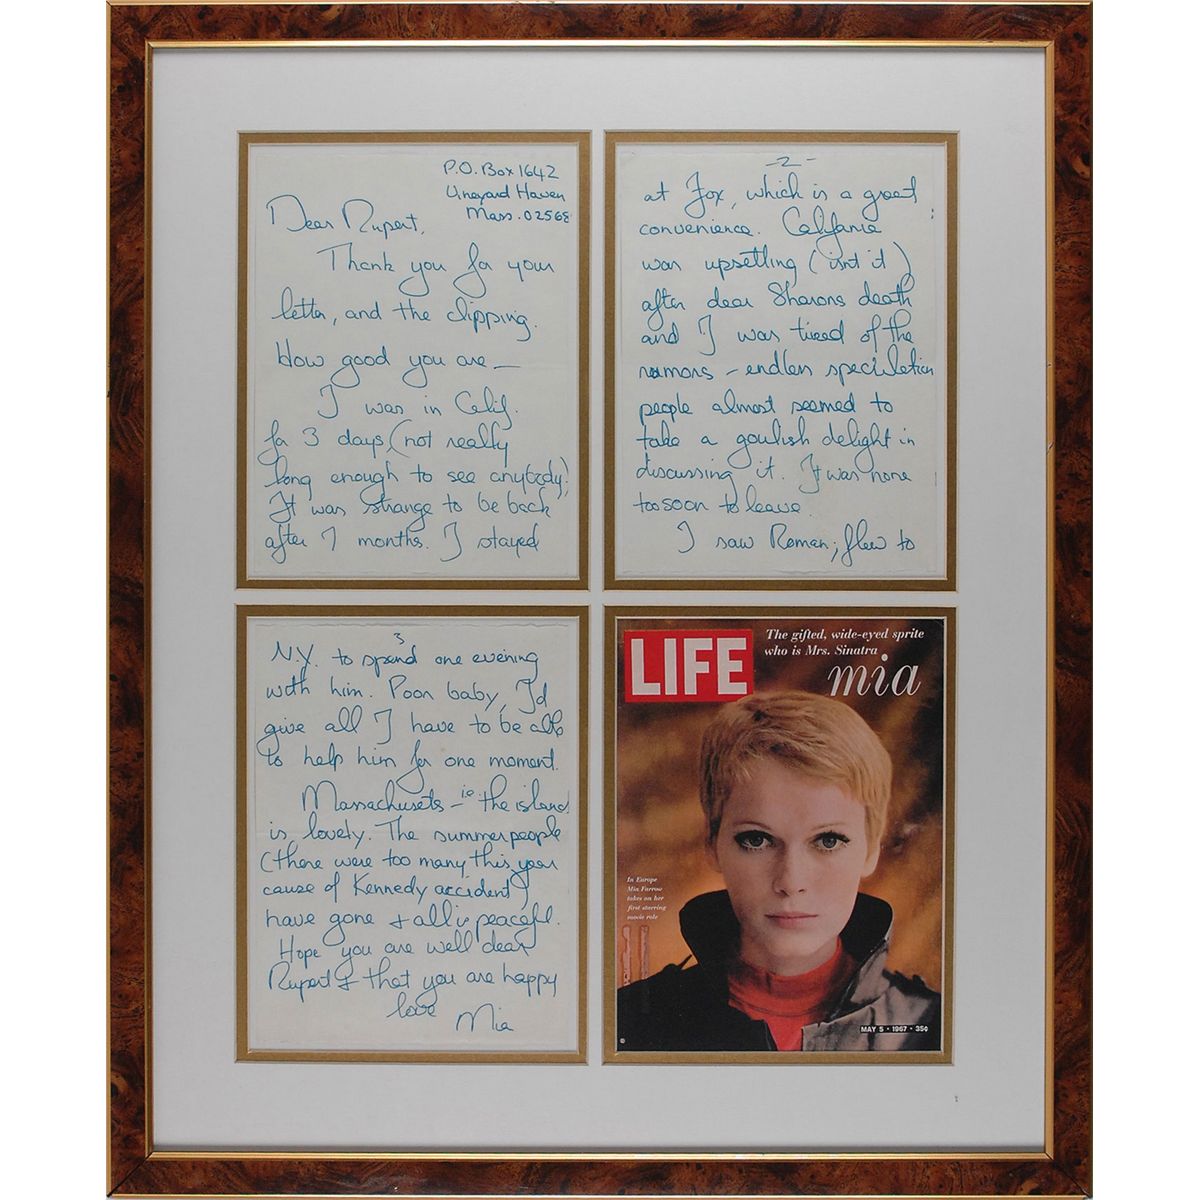 P.O. Box 1642
Vineyard Haven
Mass. 02568
Dear Rupert,
Thank you for your
letter, and the clipping.
How good you are —
I was in Calif.
for 3 days, (not really
long enough to see anybody)
It was strange to be back
after 7 months. I stayed
-2-
at Fox, which is a great
convenience. California
was upsetting (isnt it)
after dear Sharons death
and I was tired of the
rumors – endless speculation
people almost seemed to
take a goulish delight in
discussing it. It was none
too soon to leave.
I saw Roman; flew to
3
N.Y. to spend one evening
with him. Poor baby, I'd
give all I have to be able
to help him for one moment.
Massachusets – i.e. the island
is lovely. The summer people
(there were too many this year
cause of Kennedy accident)
have gone + all is peacefl.
Hope you are well dear
Rupert & that you are happy
love
Mia
LIFE
The gifted, wide-eyed sprite
who is Mrs. Sinatra
mia
In Europe
Mia Farrow
takes on her
first starring
movie role
MAY 5 · 1967 · 35¢